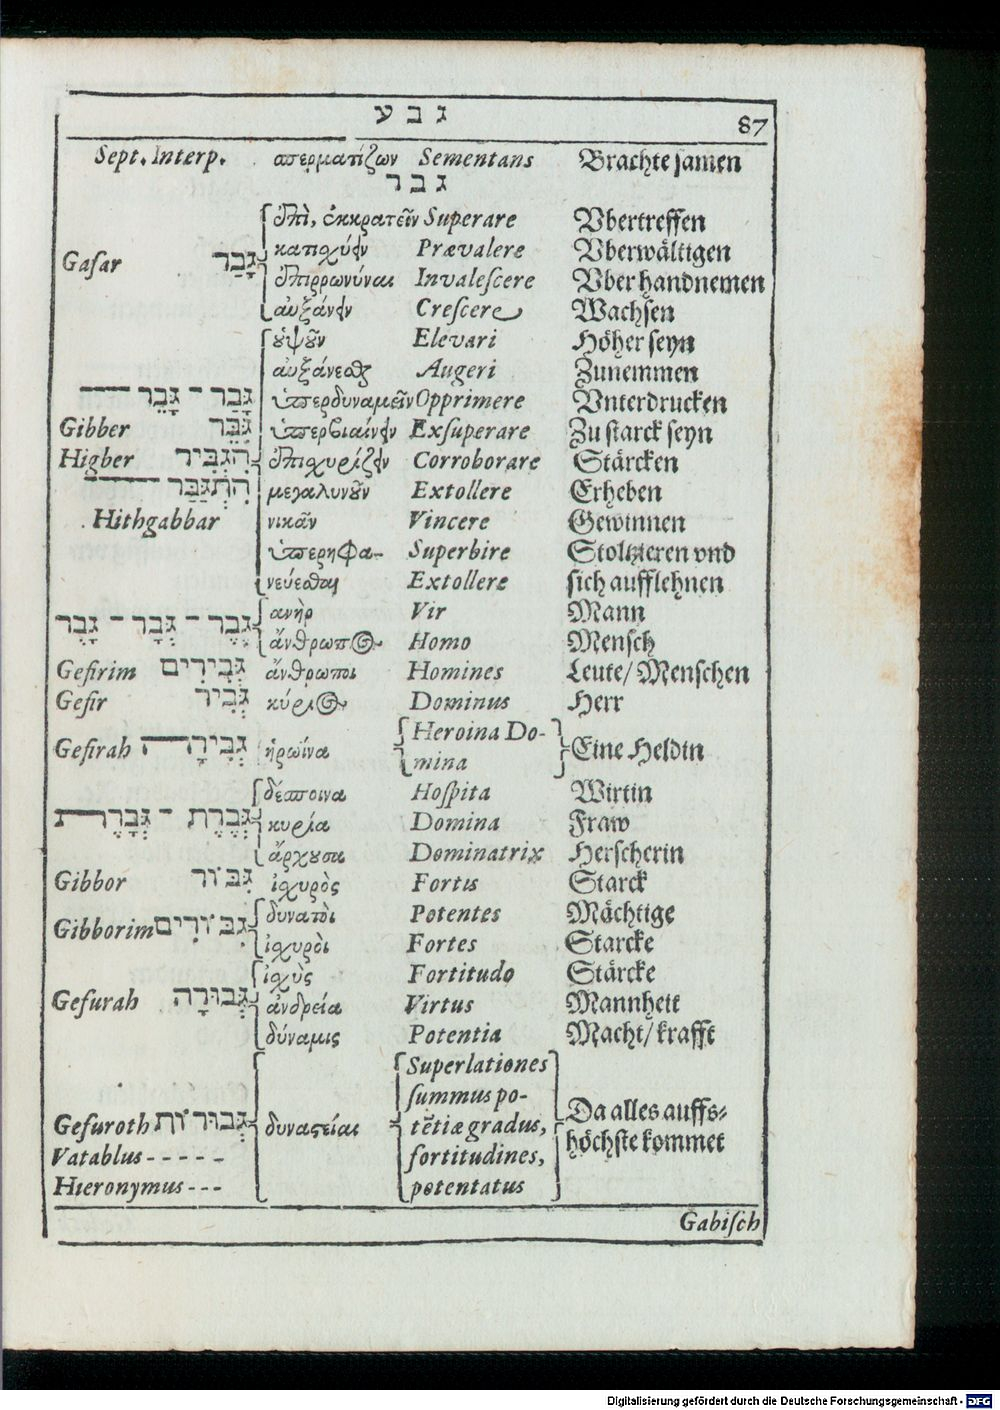 ג ב ע
87
Sept. Interp. σπερματίζων Sementans Brachte samen
ג ב ר
ἐπὶ, ἐκκρατεῖν Superare Vbertreffen
κατιχύειν Prævalere Vberwältigen
Gaſar גָּבַר ἐπιῤῥωνύναι Invaleſcere Vber handnemen
αὐξάνειν Creſcere Wachsen
ὑψοῦν Elevari Höher seyn
αὐξάνεσθαι Augeri Zunemmen
גָּבַר - גָּבֵר ὑπερδυναμεῖν Opprimere Vnterdrucken
Gibber גִּבֵּר ὑπερβιαίνειν Exſuperare Zu starck seyn
Higber הִגְבִּיר ἐπιχυρίζειν Corroborare Stärcken
הִתְגַּבַּר μεγαλυνοῦν Extollere Erheben
Hithgabbar νικᾶν Vincere Gewinnen
ὑπερηφα- Superbire Stoltzieren vnd
νεύεσθαι Extollere sich aufflehnen
גֶּבֶר - גְּבָר - גָּבֶר ανὴρ Vir Mann
ἄνθρωπος Homo Mensch
Gefirim גְּבִירִים ἄνθρωποι Homines Leute/ Menschen
Gefir גְּבִיר κύριος Dominus Herr
Gefirah גְּבִירָה ἡρωίνα Heroina Do-
mina Eine Heldin
δέσποινα Hoſpita Wirtin
גְּבֶרֶת - גְּבָרֶת κυρία Domina Fraw
ἄρχουσα Dominatrix Herscherin
Gibbor גִּבּוֹר ἰχυρὸς Fortis Starck
Gibborim גִּבּוֹרִים δυνατοὶ Potentes Mächtige
ἰχυροὶ Fortes Starcke
ἰχὺς Fortitudo Stärcke
Gefurah גְּבוּרָה ἀνδρεία Virtus Mannheit
δύναμις Potentia Macht/ krafft
Superlationes
ſummus po-
Gefuroth גְּבוּרוֹת δυναστείαι tẽtiæ gradus, Da alles auffs-
Vatablus - - - - - fortitudines, höchste kommet
Hieronymus - - - potentatus
Gabiſch
Digitalisierung gefördert durch die Deutsche Forschungsgemeinschaft - DFG